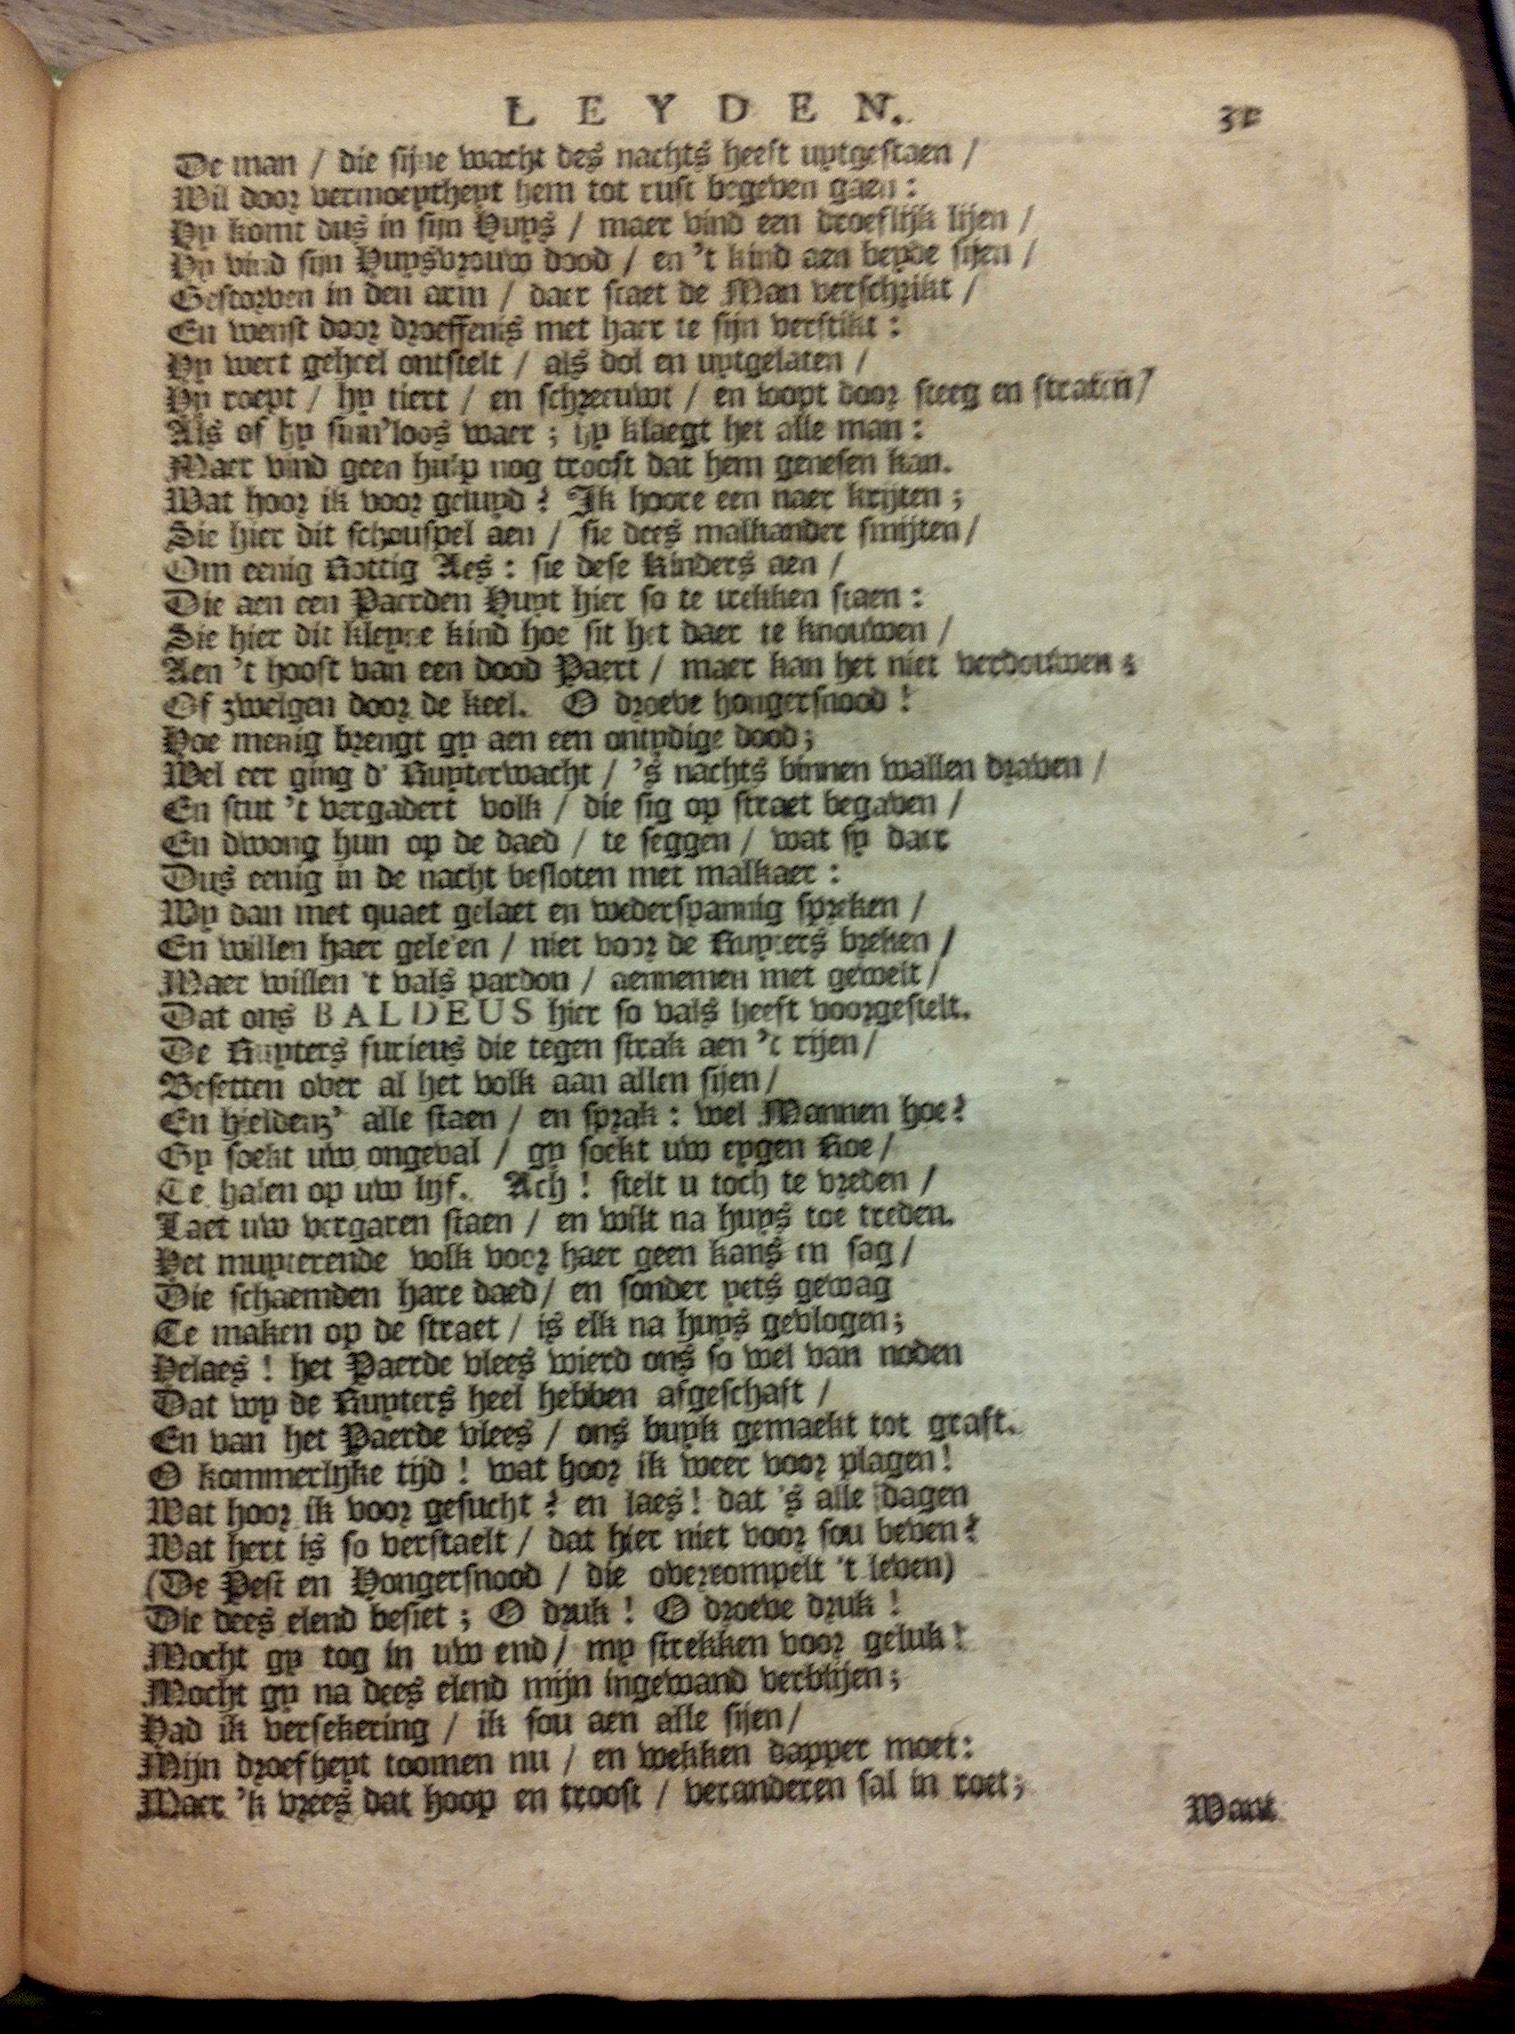 LEYDEN. 31
De man / die sijne wacht des nachts heeft uytgestaen /
Wil door vermoeytheyt hem tot rust begeven gaen :
Hy komt dus in sijn Huys / maer vind een droeflijk lijen /
Hy vind sijn Huysvrouw dood / en 't kind aen beyde sijen /
Gestorven in den arm / daer staet de Man verschrikt /
En wenst door droeffenis met haer te sijn verstikt :
Hy wert geheel ontstelt / als dol en uytgelaten /
Hy roept / hy tiert / en schreeuwt / en loopt door steeg en straten /
Als of hy sinn'loos waer ; hy klaegt het alle man :
Maer vind geen hulp nog troost dat hem genesen kan.
Wat hoor ik voor geluyd ? Ik hoore een naer krijten ;
Sie hier dit schouspel aen / sie dees malkander smijten /
Om eenig Rottig Aes : sie dese Kinders aen /
Die aen een Paerden Huyt hier so te trekken staen :
Sie hier dit kleyne kind hoe sit het daer te knouwen /
Aen 't hooft van een dood Paert / maer kan het niet verdouwen ;
Of zwelgen door de keel. O droeve hongersnood !
Hoe menig brengt gy aen een ontydige dood;
Wel eer ging d' Ruyterwacht / 's nachts binnen wallen draven /
En stut 't vergadert volk / die sig op straet begaven /
En dwong hun op de daed / te seggen / wat sy daer
Dus eenig in de nacht besloten met malkaer :
Wy dan met quaet gelaet en wederspannig spreken /
En willen haer gele'en / niet voor de Ruyters breken /
Maer willen 't vals pardon / aennemen met gewelt /
Dat ons BALDEUS hier so vals heeft voorgestelt.
De Ruyters furieus die tegen strak aen 't rijen /
Besetten over al het volk aan allen sijen /
En hieldenz' alle staen / en sprak : wel Mannen hoe ?
Gy soekt uw ongeval / gy soekt uw eygen Roe /
Te halen op uw lyf. Ach ! stelt u toch te vreden /
Laet uw vergaren staen / en wilt na huys toe treden.
Het muyterende volk voor haer geen kans en sag /
Die schaemden hare daed / en sonder yets gewag
Te maken op de straet / is elk na huys gevlogen;
Helaes ! het Paerde vlees wierd ons so wel van noden
Dat wy de Ruyters heel hebben afgeschaft /
En van het Paerde vlees / ons buyk gemaekt tot graft.
O kommerlijke tijd ! wat hoor ik weer voor plagen !
Wat hoor ik voor gesucht ? en laes ! dat 's alle dagen
Wat hert is so verstaelt / dat hier niet voor sou beven ?
(De Pest en Hongersnood / die overrompelt 't leven)
Die dees elend besiet ; O druk ! O droeve druk !
Mocht gy tog in uw end / my strekken voor geluk !
Mocht gy na dees elend mijn ingewand verblijen ;
Had ik versekering / ik sou aen alle sijen /
Mijn droefheyt toomen nu / en wekken dapper moet :
Maer 'k vrees dat hoop en troost / veranderen sal in roet ;
Want